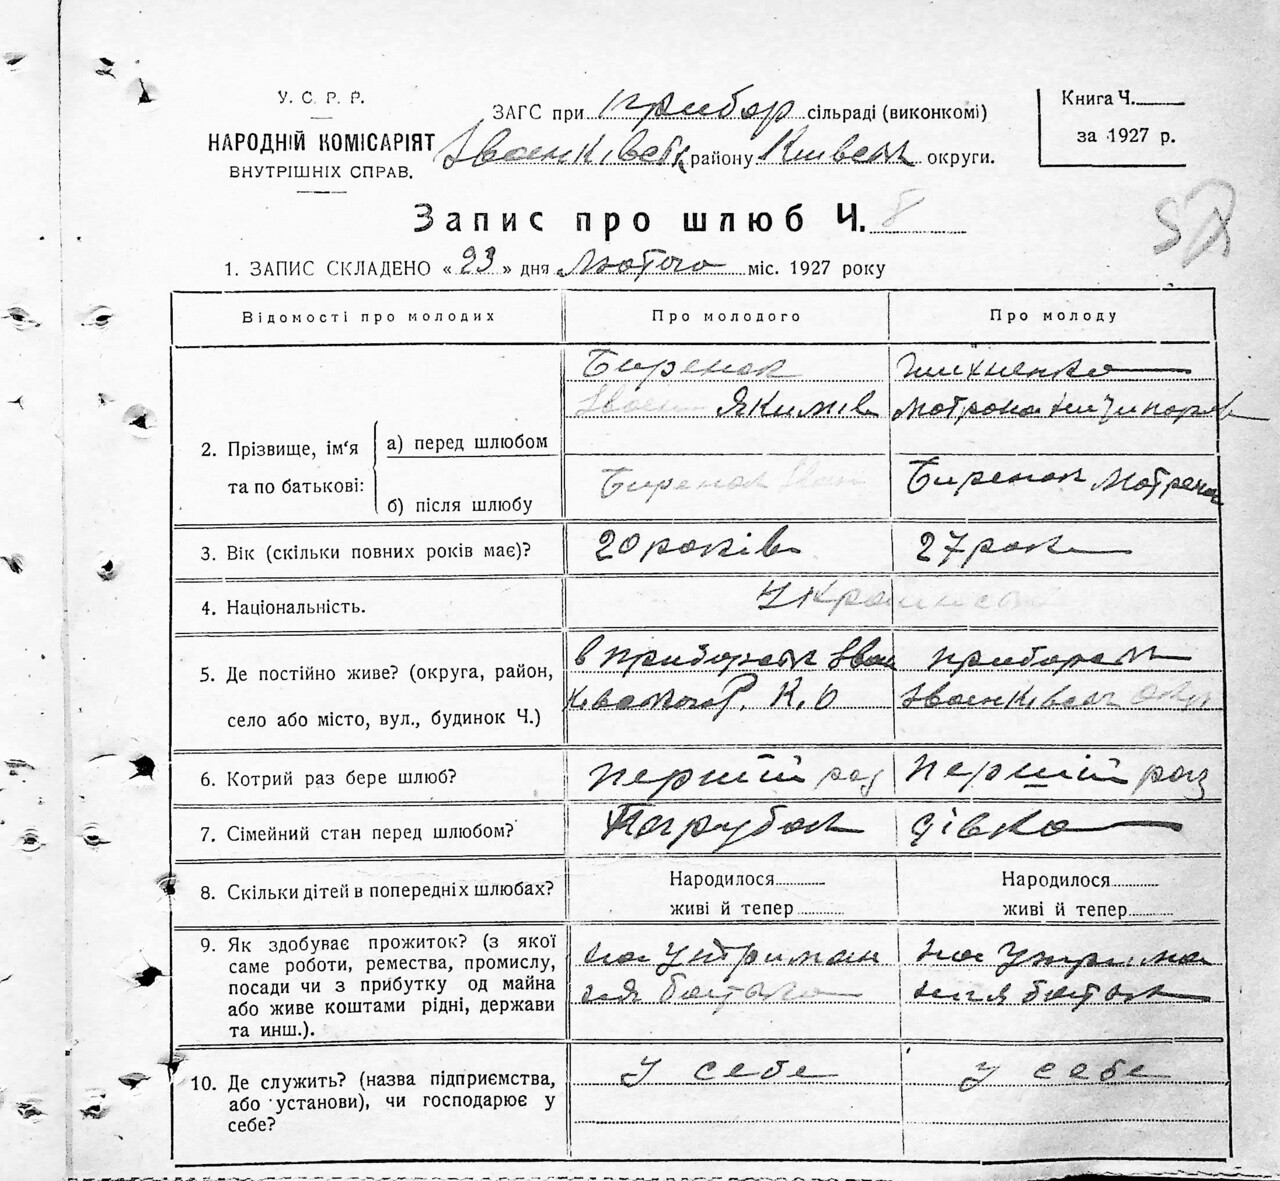 У. С. Р. Р.
НАРОДНІЙ КОМІСАРІЯТ
ВНУТРІШНІХ СПРАВ.
ЗАГС при Прибор сільраді (виконкомі)
Іванківськ району Київськ округи.
Книга Ч.
за 1927 р.
Запис про шлюб Ч. 8
1. ЗАПИС СКЛАДЕНО « 23 » дня Лютого міс. 1927 року
Відомості про молодих
Про молодого
Про молоду
2. Прізвище, ім'я та по батькові:
а) перед шлюбом
Биренок
Іван Якимів
Михненко
Мотрона
б) після шлюбу
Биренок Іван
Биренок Мотрона
3. Вік (скільки повних років має)?
20 років
27 рок
4. Національність.
Українськ
5. Де постійно живе? (округа, район,
село або місто, вул., будинок Ч.)
в Приборськ Іван
ківського Р. К. О
Приборськ
Іванківськ
6. Котрий раз бере шлюб?
перший раз
перший раз
7. Сімейний стан перед шлюбом?
Парубок
дівка
8. Скільки дітей в попередніх шлюбах?
Народилося
живі й тепер
Народилося
живі й тепер
9. Як здобуває прожиток? (з якої
саме роботи, ремества, промислу,
посади чи з прибутку од майна
або живе коштами рідні, держави
та инш.).
на утриман
ня батька
на утрима
ння батьк
10. Де служить? (назва підприємства,
або установи), чи господарює у
себе?
у себе
у себе